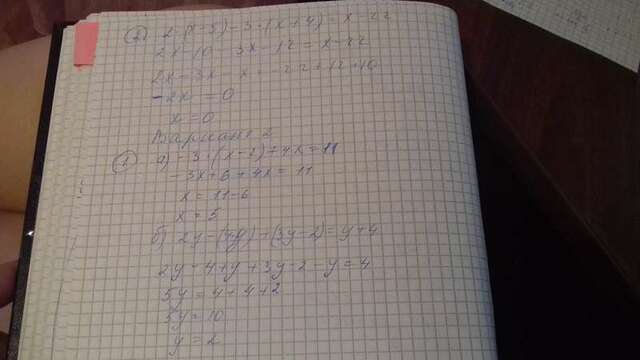 2) 2·(x-5)-3·(x+4)=x-22
2x-10-3x-12=x-22
2x-3x-x=-22+12+10
-2x=0
x=0
Вариант 2
1) а) -3·(x-2)+4x=11
-3x+6+4x=11
x=11-6
x=5
б) 2y-(4-y)+(3y-2)=y+4
2y-4+y+3y-2-y=4
5y=4+4+2
5y=10
y=2